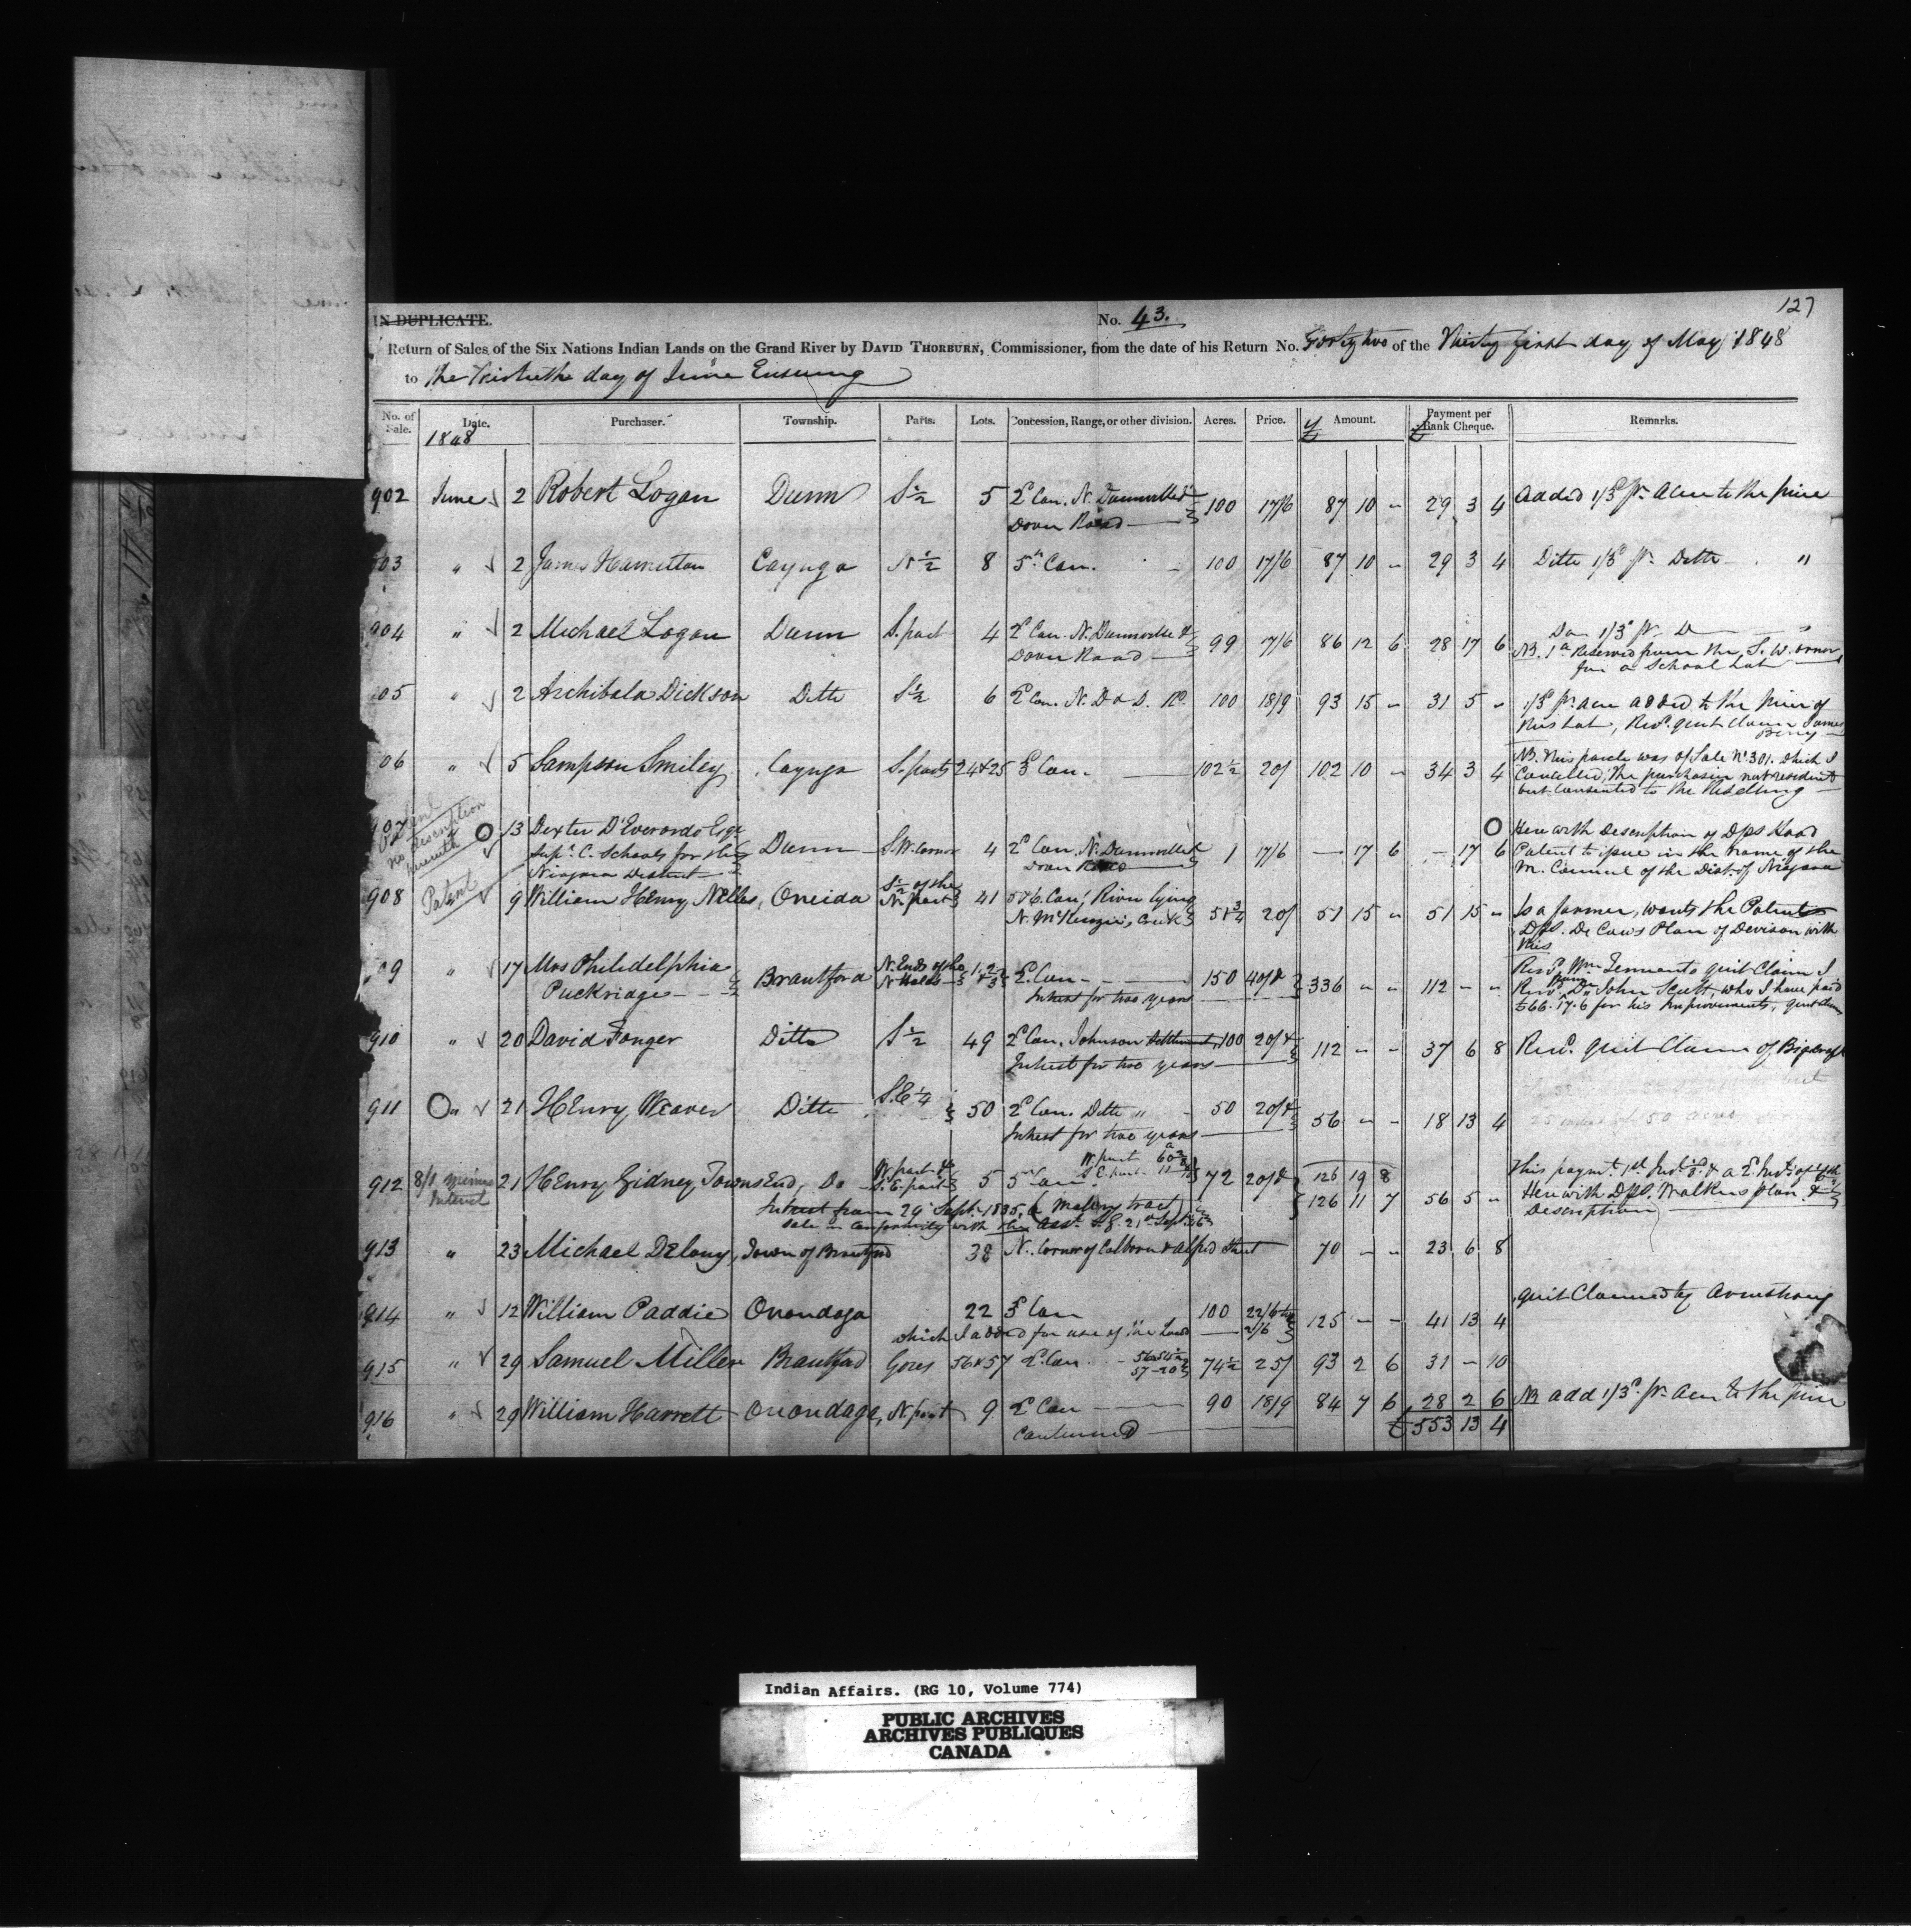 127
IN DUPLICATE. No. 43.
Return of Sales, of the Six Nations Indian Lands on the Grand River by DAVID THORBURN, Commissioner, from the date of his Return No. Forty two of the Thirty first day of May 1848
to the Thirtieth day of June Ensuing
No. of Sale. Date. Purchaser. Township. Parts. Lots. Concession, Range, or other division. Acres. Price. £ Amount. Payment per £ Bank Cheque. Remarks.
1848
902 June 2 Robert Logan Dunn S ½ 5 2d Con. N. Dunnville & 100 17/6 87 10 " 29 3 4 Added 1/3d pr. Acre to the price
Dover Road
03 " 2 James Hamilton Cayuga N ½ 8 5th Con. 100 17/6 87 10 " 29 3 4 Ditto 1/3d pr. Ditto "
904 " 2 Michael Logan Dunn S. part 4 2d Con. N. Dunnville & 99 17/6 86 12 6 28 17 6 Do 1/3d pr. D "
Dover Road NB. 1a Reserved from the S. W. corner
for a School Lot
05 " 2 Archibald Dickson Ditto S ½ 6 2d Con. N. D & D. Rd. 100 18/9 93 15 " 31 5 " 1/3d pr. acre added to the price of
this Lot, Recd. quit claim James
Berry
06 " 5 Sampson Smiley Cayuga S. parts 24 & 25 3d Con. 102 ½ 20/ 102 10 " 34 3 4 NB. This parcel was of Sale No. 301. which I
Cancelled, the purchaser not resident
but consented to the Reselling
907 Patent
no description
herewith
13 Dexter D'Everardo Esqr. Dunn S.W. Corner 4 2d Con. N. Dunnville & 1 17/6 — 17 6 — 17 6 Herewith Description of Dps Hood
Supt. C. Schools for the Dover Road Patent to issue in the name of the
Niagara District M. Council of the Dist. of Niagara
908 Patent 9 William Henry Nelles, Oneida S ½ of the N. part 41 5 & 6. Con. River lying 51 ¾ 20/ 51 15 " 51 15 " Is a farmer, wants the Patent
N. McKenzie's Creek DpS. De Cew's Plan of Devison with
this
09 " 17 Mrs Philidelphia Brantford N. Ends of the 1. 2 & 3 2d Con. 150 40/ & 336 " " 112 - - Recd. Wm. quit Claim I
Puckridge N. Halfs Interest for two years Recd. from Do. John Scott, who I have paid
£66. 17. 6 for his Improvements, quit claim
910 " 20 David Fonger Ditto S ½ 49 2d Con. Johnson Settlement, 100 20/ & 112 - - 37 6 8 Recd. quit Claim of
Interest for two years
911 " 21 Henry Weaver Ditto S.E ¼ 50 2d Con. Ditto " 50 20/ & 56 - - 18 13 4 50 acres
Interest for two years
W. part 60
S. E. part 11
912 8/1 minus 21 Henry Gidney Townsend, Do W. part & S. E. part 5 5 Con 72 20/ & 126 19 8 This paymt. 1st Inst.
Interest 126 11 7 56 5 " Herewith DpS. Walker's plan &
Interest from 29 Sept. 1835, (a Mallery tract) Description
Sale in Conformity with the
913 " 23 Michael Delany, Town of Brantford 38 N. Corner of Colborne & Alfred Street 70 - - 23 6 8
914 " 12 William Paddie Onondaga 22 3d Con 100 22/6 & 125 - - 41 13 4 quit Claimed by Armstrong
which I added for use of the Land 2/6
915 " 29 Samuel Miller Brantford Gores 56 & 57 2d Con. 56-54 ½ 74 ½ 25/ 93 2 6 31 - 10
57-20
916 " 29 William Harrett Onondaga, N. part 9 2d Con 90 18/9 84 7 6 28 2 6 NB add 1/3d. pr. Acre to the price
Continued £ 553 13 4
Indian Affairs. (RG 10, Volume 774)
PUBLIC ARCHIVES
ARCHIVES PUBLIQUES
CANADA